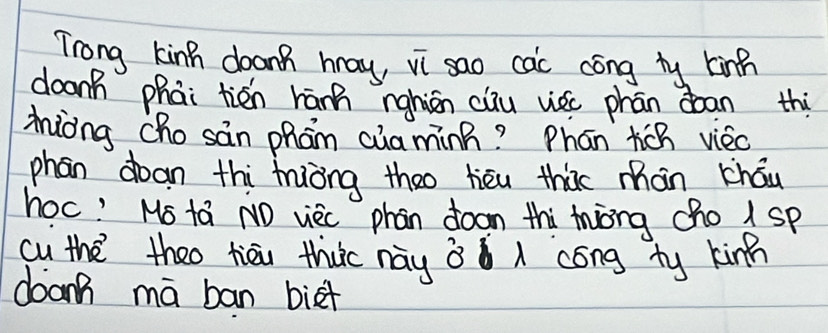 Trong kinh doanh hnay, vì sao các công ty kinh
doanh phải tiến hành nghiên cứu việc phân đoạn thị
trường cho sản phẩm của mình? Phân tích việc
phân đoạn thị trường theo tiêu thức nhân khẩu
học? Mô tả ND việc phân đoạn thị trường cho 1 sp
cụ thể theo tiêu thức này ở 1 công ty kinh
doanh mà bạn biết